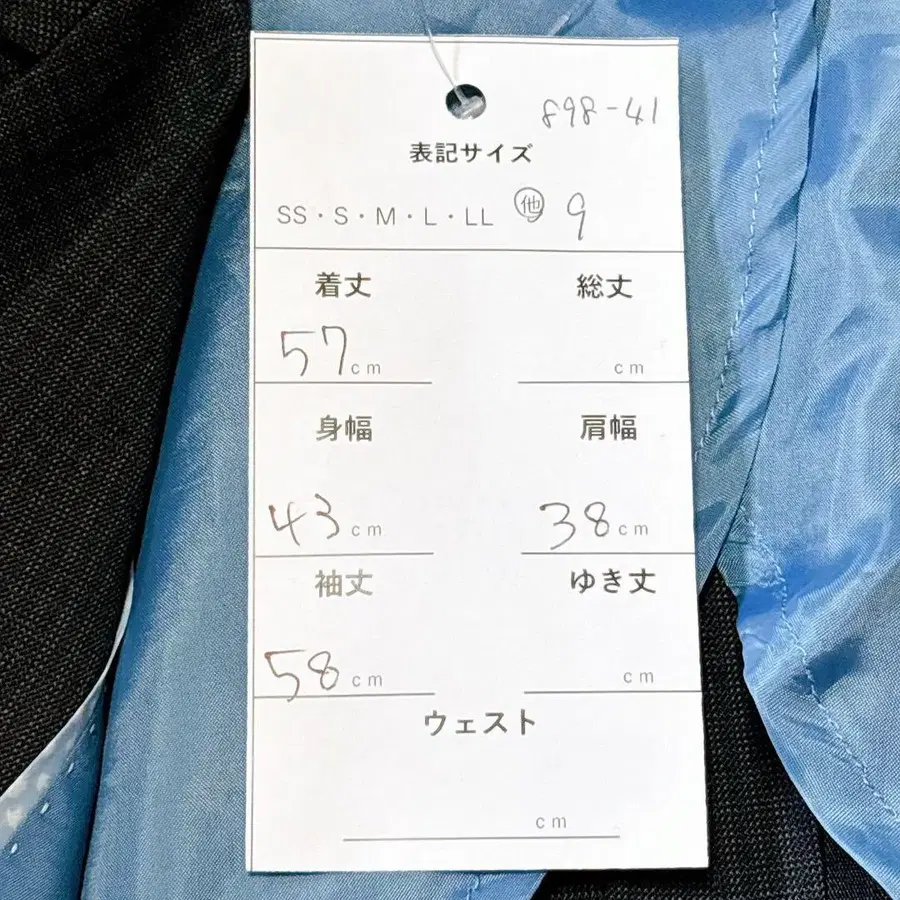 898-41
表記サイズ
SS・S・M・L・LL 他 9
着丈 総丈
57cm cm
身幅 肩幅
43cm 38cm
袖丈 ゆき丈
58cm cm
ウェスト
cm